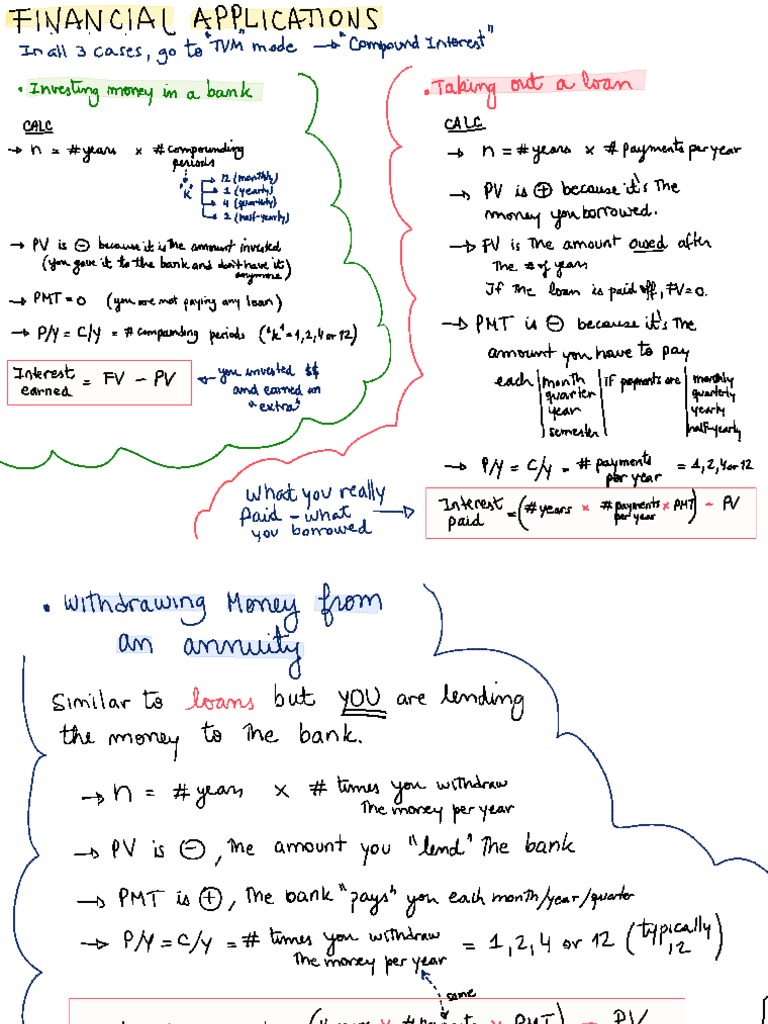 FINANCIAL APPLICATIONS
In all 3 cases, go to "TVM" mode → "Compound Interest"
• Investing money in a bank
CALC
→ n = # years × # compounding
periods
"k"
12 (monthly)
1 (yearly)
4 (quarterly)
2 (half-yearly)
→ PV is ⊖ because it is the amount invested
(you gave it to the bank and don't have it)
anymore
→ PMT = 0 (you are not paying any loan)
→ P/Y = C/Y = # compounding periods ("k" = 1, 2, 4 or 12)
Interest
earned = FV - PV
← you invested $$
and earned an
"extra"
• Taking out a loan
CALC
→ n = # years × # payments per year
→ PV is ⊕ because it's the
money you borrowed.
→ FV is the amount owed after
the # of years
If the loan is paid off, FV=0.
→ PMT is ⊖ because it's the
amount you have to pay
each | month | if payments are | monthly
quarter | quarterly
year | yearly
semester | half-yearly
→ P/Y = C/Y = # payments = 1, 2, 4 or 12
per year
What you really
paid - what
you borrowed →
Interest
paid = (# years × # payments × PMT) - PV
per year
• Withdrawing Money from
an annuity
Similar to loans but YOU are lending
the money to the bank.
→ n = # years × # times you withdraw
the money per year
→ PV is ⊖, the amount you "lend" the bank
→ PMT is ⊕, the bank "pays" you each month/year/quarter
→ P/Y = C/Y = # times you withdraw = 1, 2, 4 or 12 (typically
the money per year 12)
same